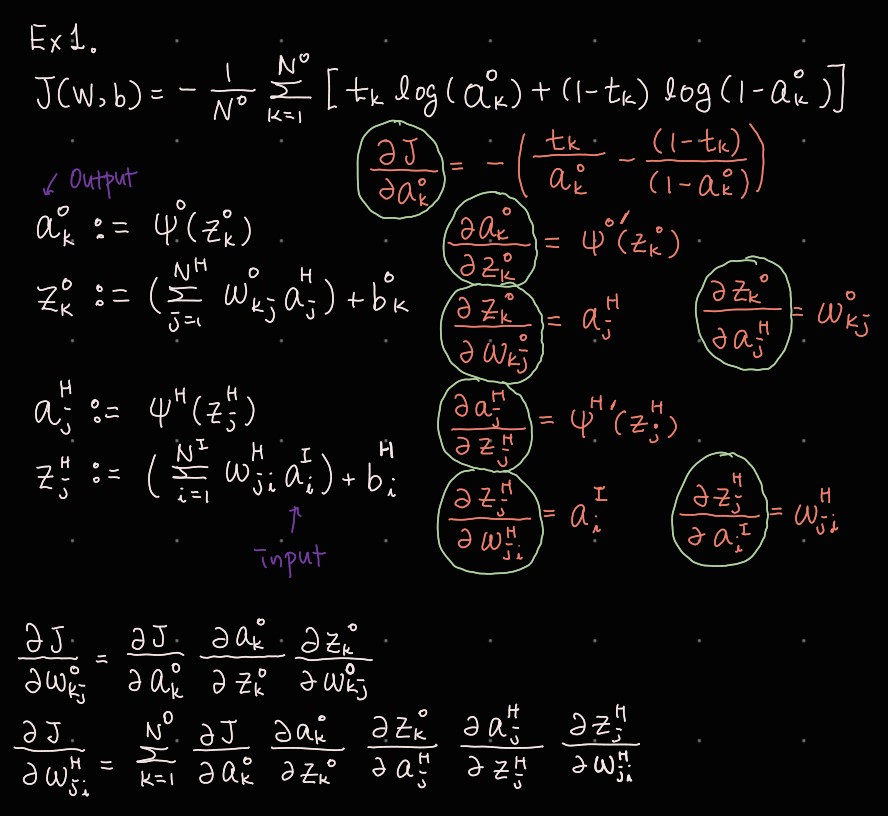 Ex1.
J(W,b) = - 1/N^O Σ_{k=1}^{N^O} [t_k log(a_k^O) + (1-t_k) log(1-a_k^O)]
∂J/∂a_k^O = - (t_k/a_k^O - (1-t_k)/(1-a_k^O))
↙ Output
a_k^O := ψ^O(z_k^O)
∂a_k^O/∂z_k^O = ψ^O'(z_k^O)
z_k^O := (Σ_{j=1}^{N^H} w_{kj}^O a_j^H) + b_k^O
∂z_k^O/∂w_{kj}^O = a_j^H
∂z_k^O/∂a_j^H = w_{kj}^O
a_j^H := ψ^H(z_j^H)
∂a_j^H/∂z_j^H = ψ^H'(z_j^H)
z_j^H := (Σ_{i=1}^{N^I} w_{ji}^H a_i^I) + b_i^H
∂z_j^H/∂w_{ji}^H = a_i^I
∂z_j^H/∂a_i^I = w_{ji}^H
↑ input
∂J/∂w_{kj}^O = ∂J/∂a_k^O ∂a_k^O/∂z_k^O ∂z_k^O/∂w_{kj}^O
∂J/∂w_{ji}^H = Σ_{k=1}^{N^O} ∂J/∂a_k^O ∂a_k^O/∂z_k^O ∂z_k^O/∂a_j^H ∂a_j^H/∂z_j^H ∂z_j^H/∂w_{ji}^H